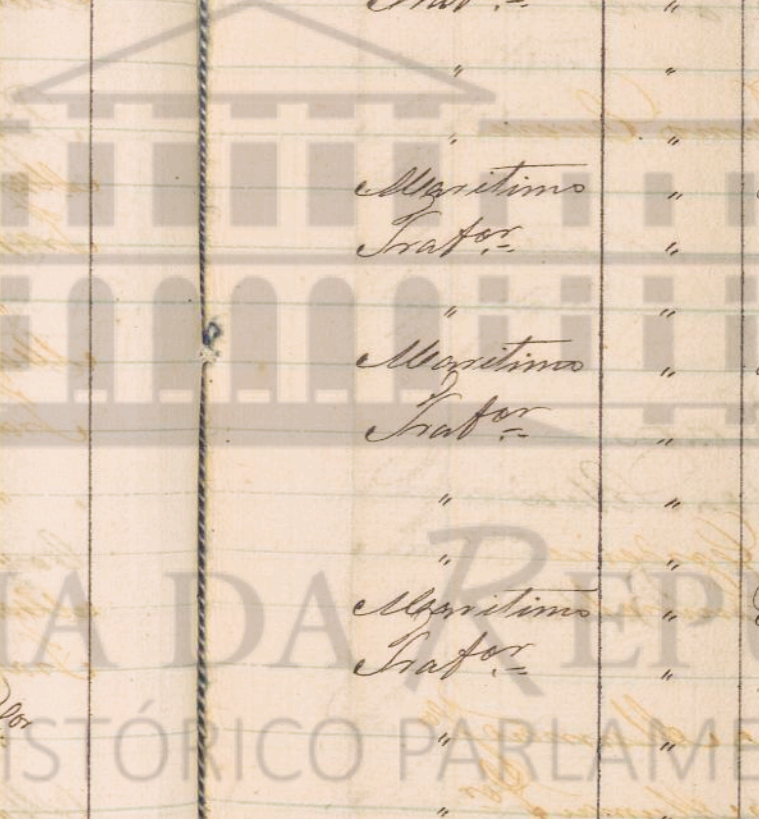 Trab.or "
" "
" "
Maritimo "
Trabor "
" "
Maritimo "
Trabor "
" "
" "
Maritimo "
Trabor "
dor " "
" "
IA DA REPU
ISTÓRICO PARLAME